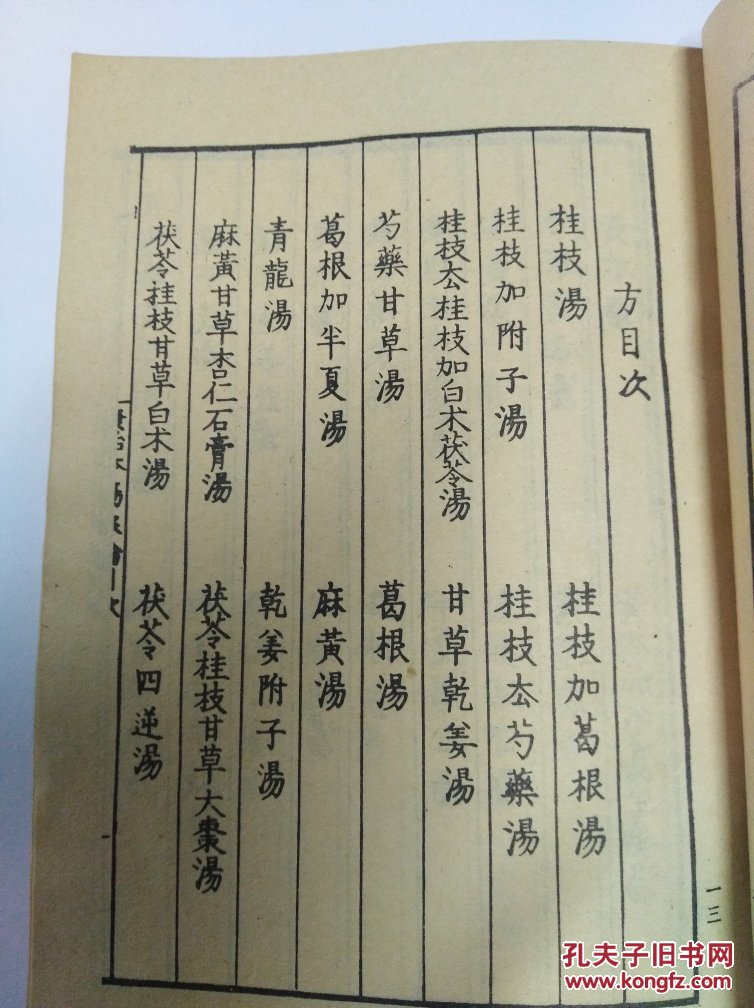 方目次
桂枝湯　桂枝加葛根湯
桂枝加附子湯　桂枝厺芍藥湯
桂枝厺桂枝加白术茯苓湯　甘草乾姜湯
芍藥甘草湯　葛根湯
葛根加半夏湯　麻黃湯
青龍湯　乾姜附子湯
麻黃甘草杏仁石膏湯　茯苓桂枝甘草大棗湯
茯苓桂枝甘草白术湯　茯苓四逆湯
一三
孔夫子旧书网
www.kongfz.com